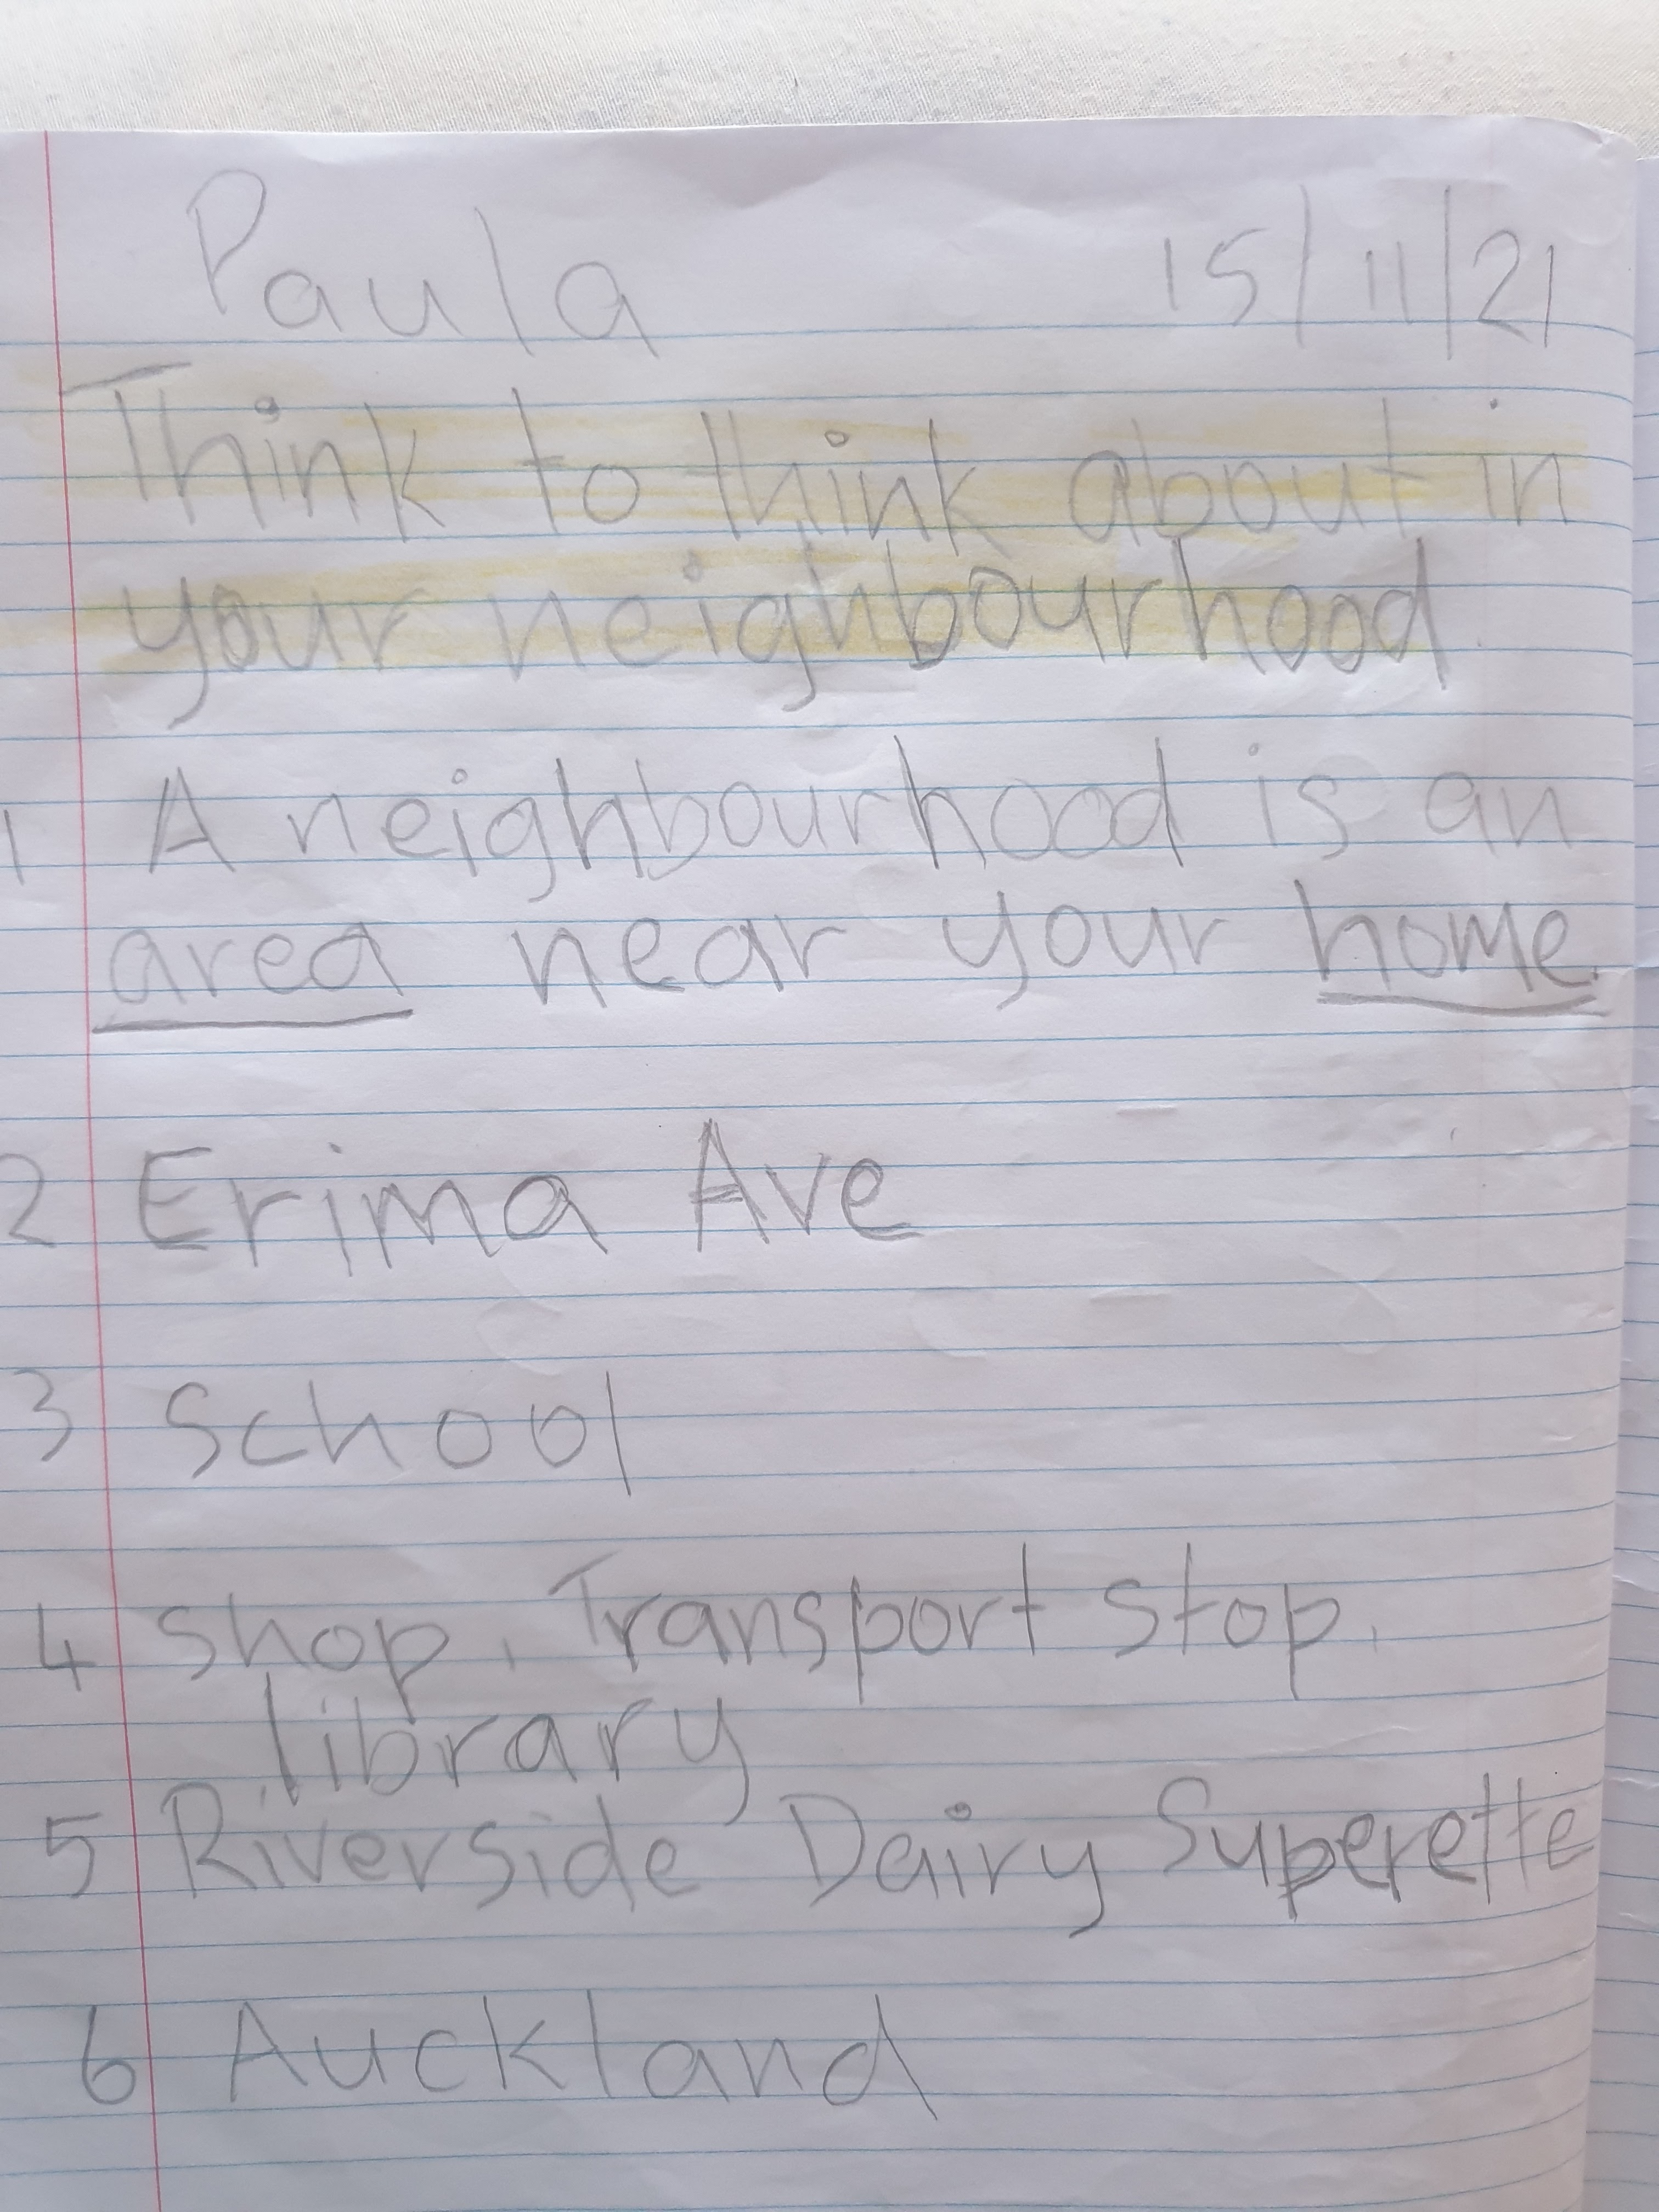 Paula 15/11/21
Think to think about in
your neighbourhood.
1 A neighbourhood is an
area near your home.
2 Erima Ave
3 School
4 shop, Transport stop,
library
5 Riverside Dairy Superette
6 Auckland